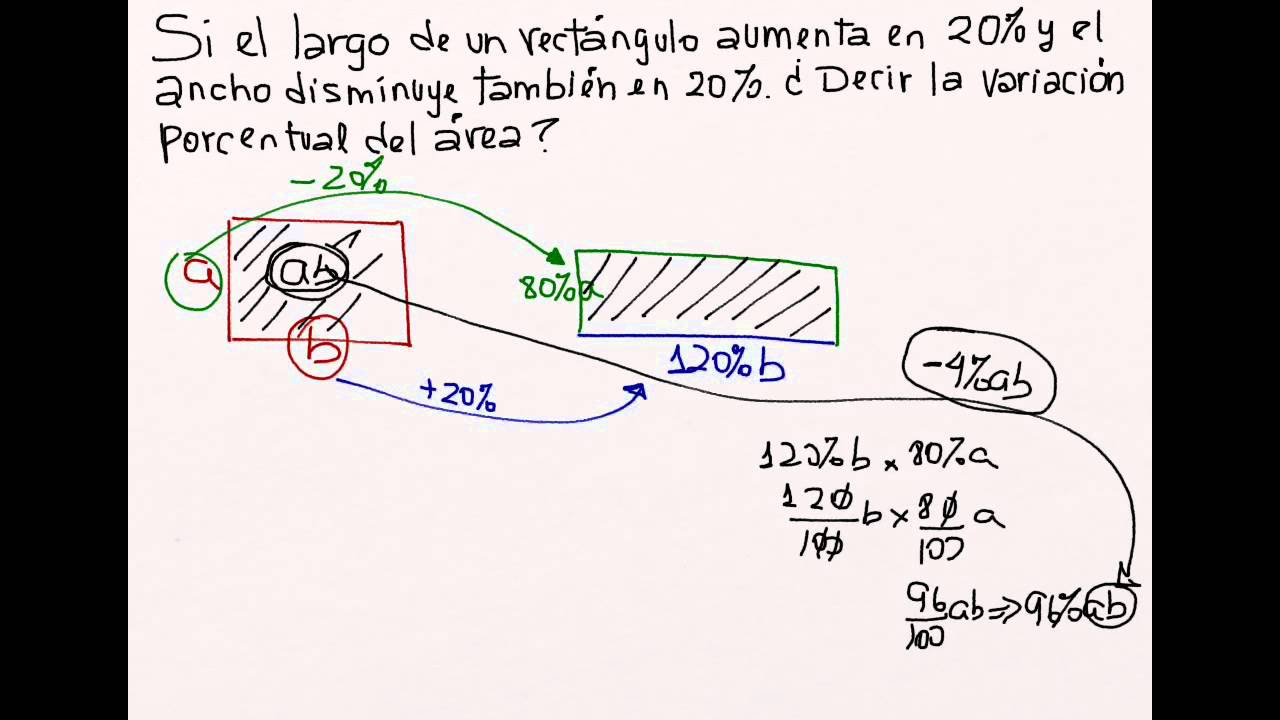 Si el largo de un rectángulo aumenta en 20% y el
ancho disminuye también en 20%. ¿ Decir la variación
porcentual del área?
-20%
a
ab
80%a
b
120%b
+20%
-4%ab
120%b x 80%a
120/100 b x 80/100 a
96/100 ab => 96%ab